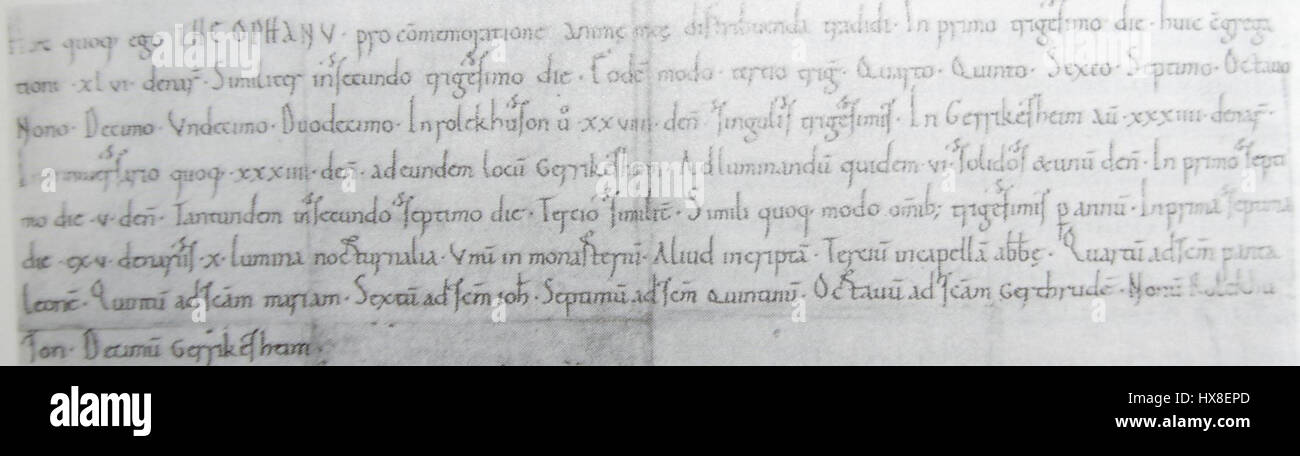 quoq; ego THEOPHANV · pro cōmemoratione anime meę distribuenda tradidi · In primo trigesimo die · huic c̄grega
tioni · xl vi · denař · Similiter in secundo trigesimo die · Eodē modo · tercio trig̅ · Quarto · Quinto · Sexto · Septimo · Octauo
Nono · Decimo · Vndecimo · Duodecimo · In Rolekhuson ů · xxviiii · deñ singulis trigesimis · In Gerrikesheim aū · xxxiiii · denař ·
quoq; · xxxiiii · deñ · ad eundem locū Gerrikeshem · Ad luminandū quidem · vi · solidos & unū deñ · In primo septi
mo die · v · deñ · Tantundem in secundo septimo die · Tercio similit̄ · Simili quoq; modo om̄ib; trigesimis p annū · In prima septima
die · ex v · denariis · x · lumina nocturnalia · Vnū in monasterio · Aliud in criptā · Terciū in capellā abb̄ę · Quartū ad sc̄m panta
leonē · Quintū ad sc̄am mariam · Sextū ad sc̄m ioh̄ · Septimū ad sc̄m quirinū · Octauū ad sc̄am Gerthrudē · Nonū Rolekhu
son · Decimū Gerrikesheim ·
alamy stock photo
HX8EPD
www.alamy.com